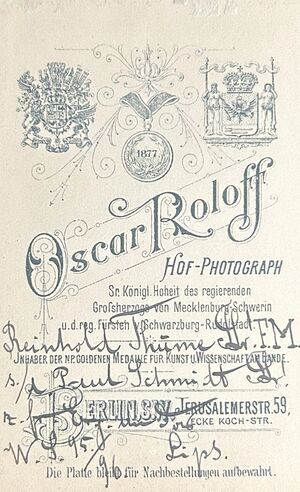 1877
Oscar Roloff
HOF-PHOTOGRAPH
Sr. Königl. Hoheit des regierenden
Großherzogs von Mecklenburg-Schwerin
u. d. reg. Fürsten v. Schwarzburg-Rudolstadt.
Reinhold
INHABER DER NP. GOLDENEN MEDAILLE FÜR KUNST U. WISSENSCHAFT AM BANDE.
s/l Paul Schmidt
BERLIN.SW. JERUSALEMERSTR. 59,
ECKE KOCH-STR.
W. S. 95/96. Lips.
Die Platte bleibt für Nachbestellungen aufbewahrt.